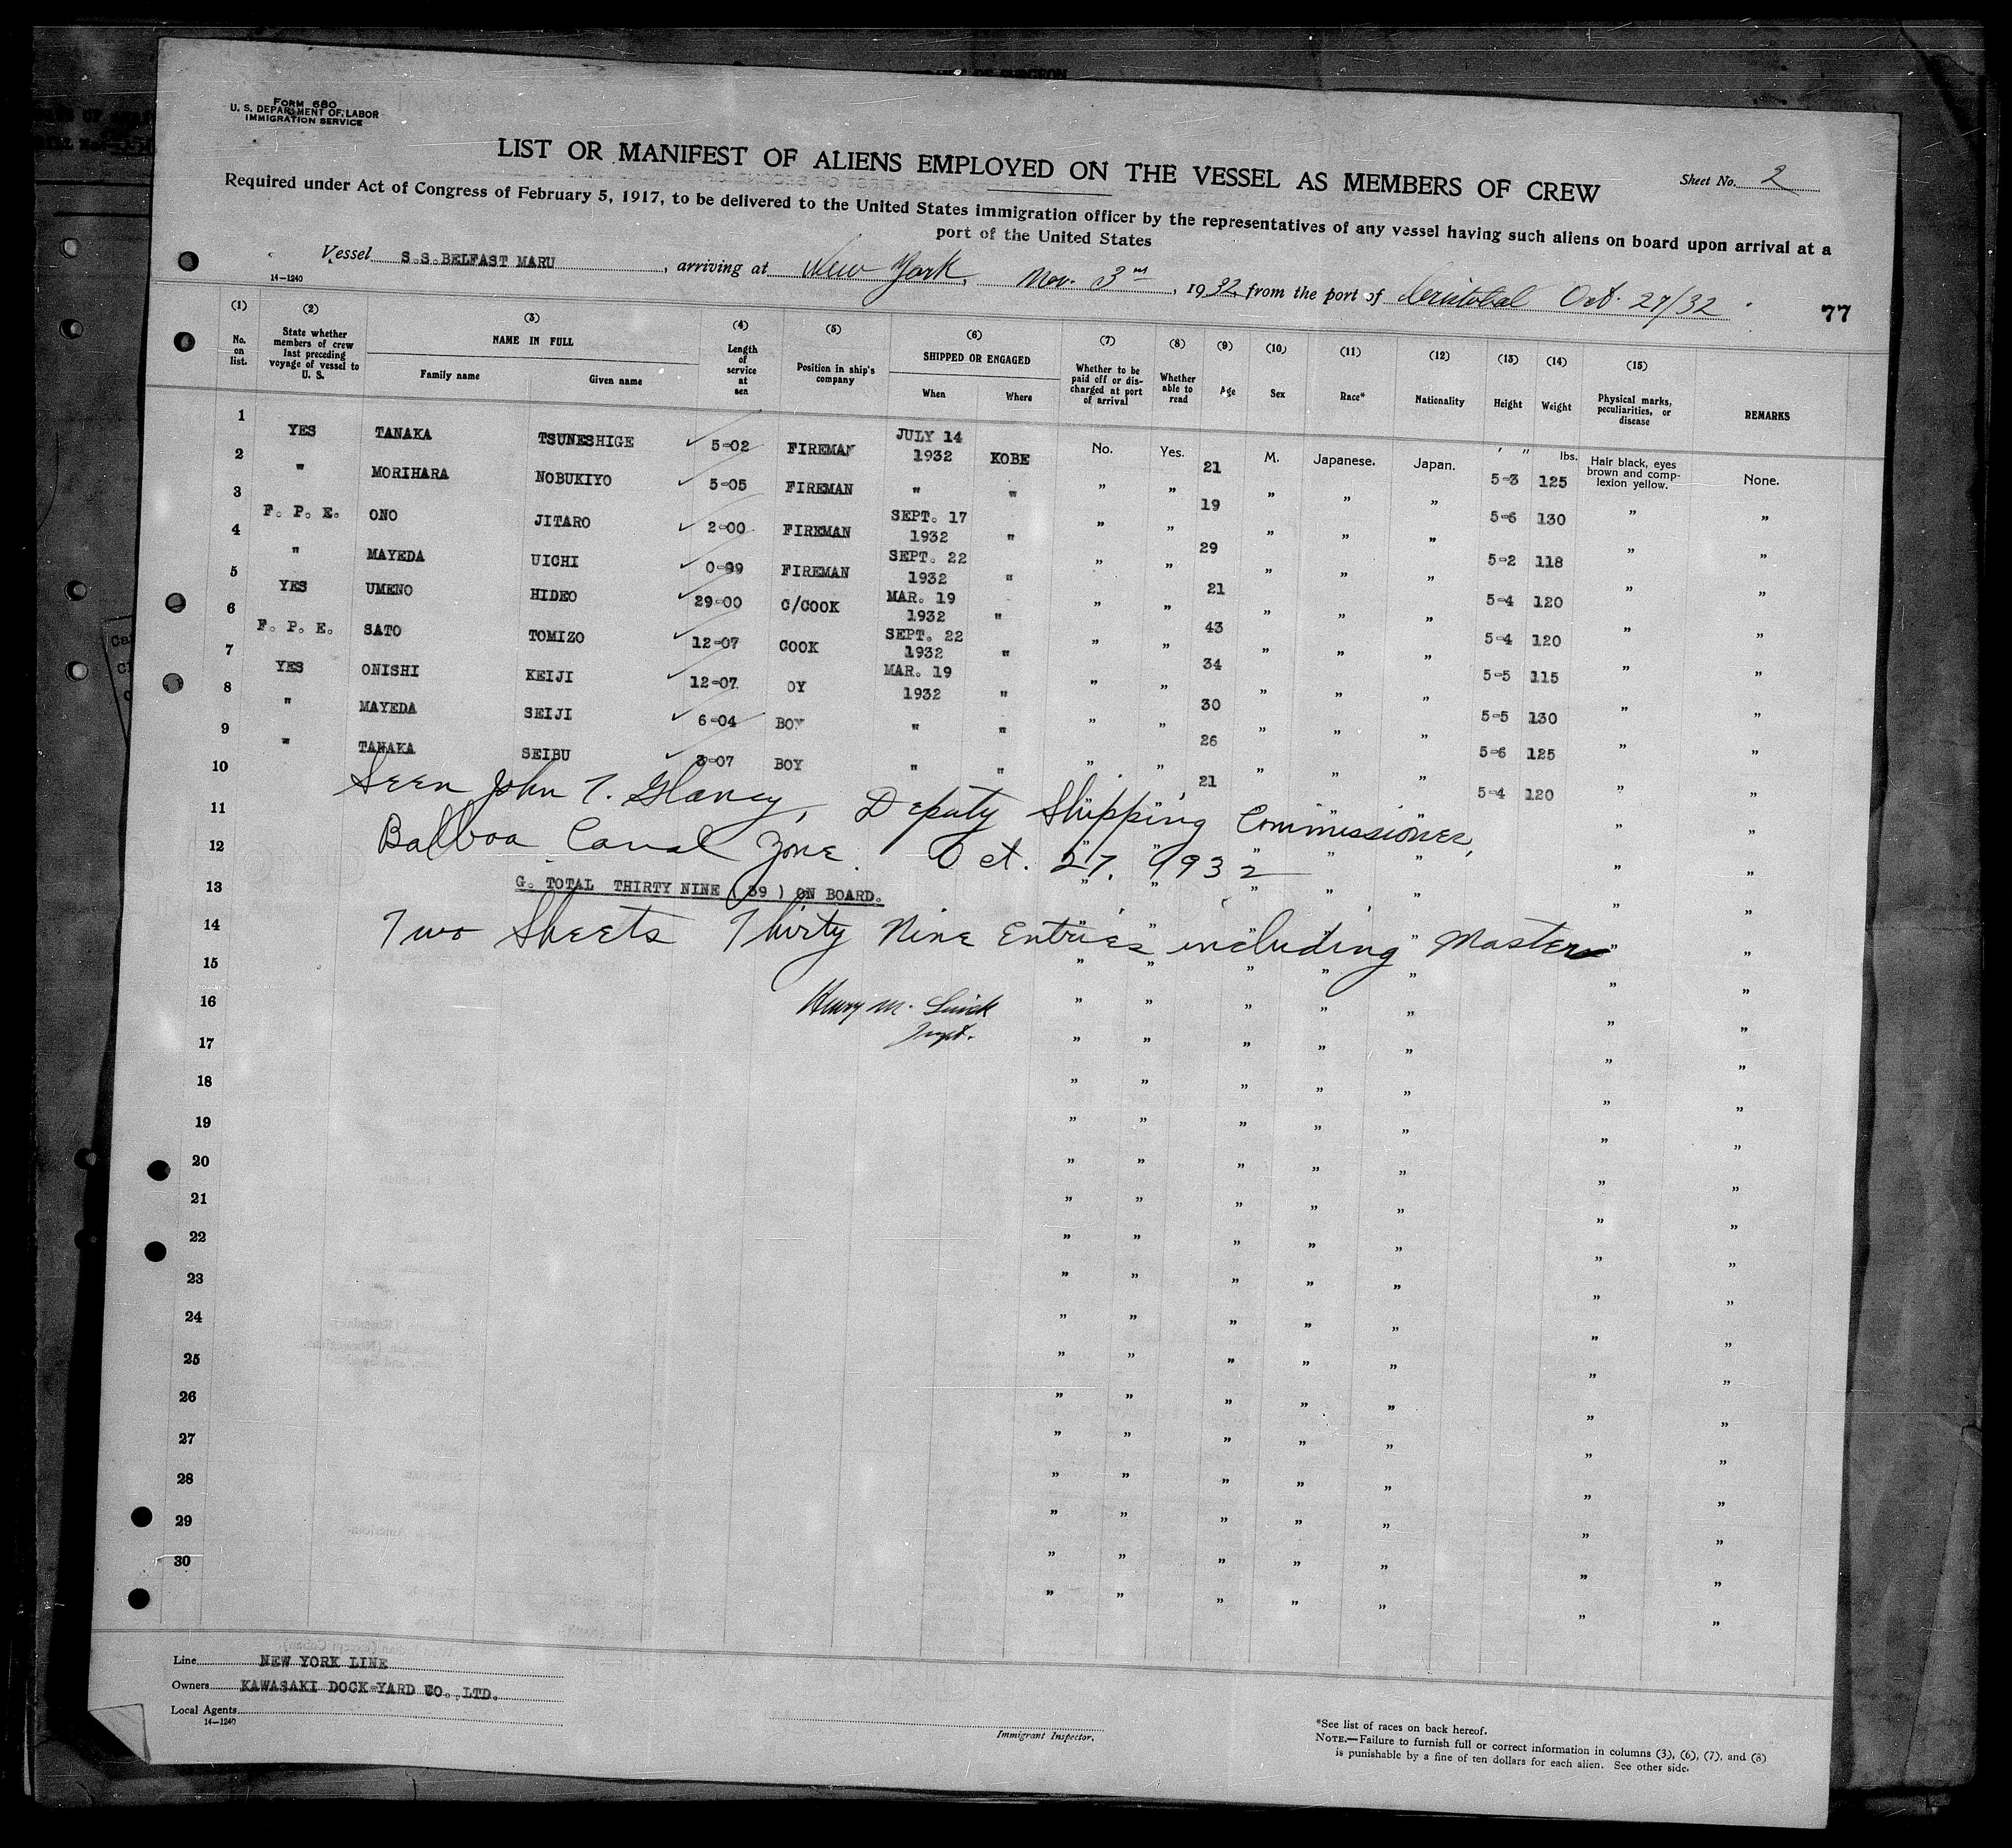 FORM 680
U. S. DEPARTMENT OF LABOR
IMMIGRATION SERVICE
LIST OR MANIFEST OF ALIENS EMPLOYED ON THE VESSEL AS MEMBERS OF CREW
Sheet No. 2
Required under Act of Congress of February 5, 1917, to be delivered to the United States immigration officer by the representatives of any vessel having such aliens on board upon arrival at a
port of the United States
Vessel S.S.BELFAST MARU, arriving at New York, Nov. 3rd, 1932, from the port of Cristobal Oct. 27/32
14-1240
77
(1) (2) (3) (4) (5) (6) (7) (8) (9) (10) (11) (12) (13) (14) (15)
No. on list. State whether members of crew last preceding voyage of vessel to U. S. NAME IN FULL Family name Given name Length of service at sea Position in ship's company SHIPPED OR ENGAGED When Where Whether to be paid off or discharged at port of arrival Whether able to read Age Sex Race* Nationality Height Weight Physical marks, peculiarities, or disease REMARKS
1 YES TANAKA TSUNESHIGE 5-02 FIREMAN JULY 14 1932 KOBE No. Yes. 21 M. Japanese. Japan. 5-3 125 lbs. Hair black, eyes brown and complexion yellow. None.
2 " MORIHARA NOBUKIYO 5-05 FIREMAN " " " " 19 " " " 5-6 130 " "
3 F. P. E. ONO JITARO 2-00 FIREMAN SEPT. 17 1932 " " " 29 " " " 5-2 118 " "
4 " MAYEDA UICHI 0-99 FIREMAN SEPT. 22 1932 " " " 21 " " " 5-4 120 " "
5 YES UMENO HIDEO 29-00 C/COOK MAR. 19 1932 " " " 43 " " " 5-4 120 " "
6 F. P. E. SATO TOMIZO 12-07 COOK SEPT. 22 1932 " " " 34 " " " 5-5 115 " "
7 YES ONISHI KEIJI 12-07 OY MAR. 19 1932 " " " 30 " " " 5-5 130 " "
8 " MAYEDA SEIJI 6-04 BOY " " " " 26 " " " 5-6 125 " "
9 " TANAKA SEIBU 3-07 BOY " " " " 21 " " " 5-4 120 " "
10
Seen John T. Glancy, Deputy Shipping Commissioner,
11
Balboa Canal Zone. Oct. 27, 1932
12
G. TOTAL THIRTY NINE ( 39 ) ON BOARD.
13
Two Sheets Thirty Nine Entries including Master
14
15
Henry M.
16
Inspt.
17
18
19
20
21
22
23
24
25
26
27
28
29
30
Line NEW YORK LINE
Owners KAWASAKI DOCK-YARD CO., LTD.
Local Agents
14-1240
Immigrant Inspector.
*See list of races on back hereof.
NOTE.—Failure to furnish full or correct information in columns (3), (6), (7), and (8)
is punishable by a fine of ten dollars for each alien. See other side.